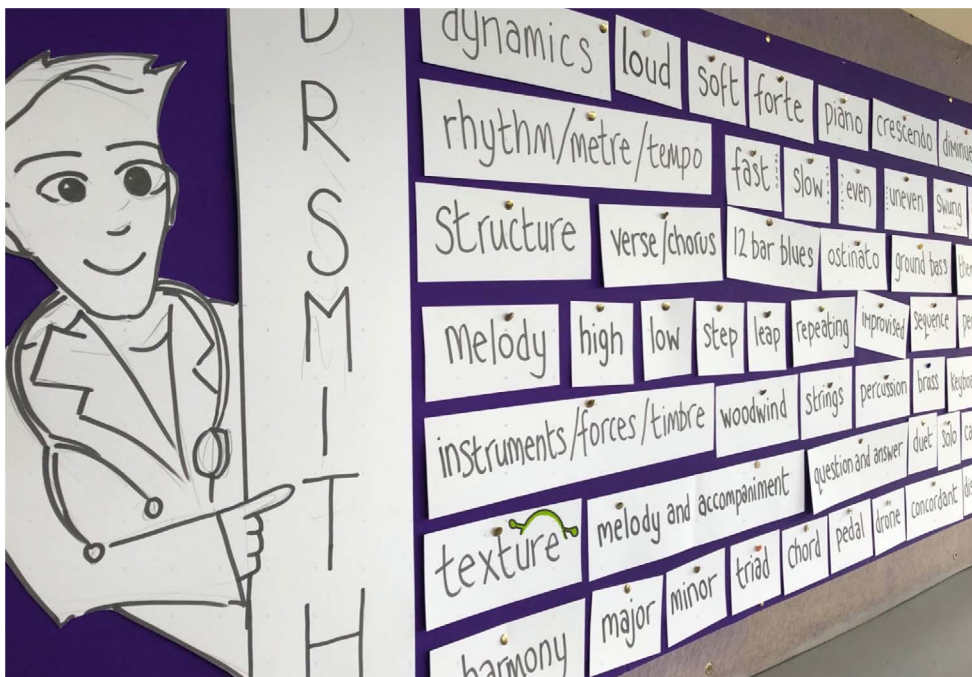 D
R
S
M
I
T
H
dynamics loud soft forte piano crescendo
rhythm/metre/tempo fast slow even uneven swung
Structure verse/chorus 12 bar blues ostinato ground bass
melody high low step leap repeating improvised sequence
instruments/forces/timbre woodwind strings percussion brass
texture melody and accompaniment question and answer duet solo
harmony major minor triad chord pedal drone concordant